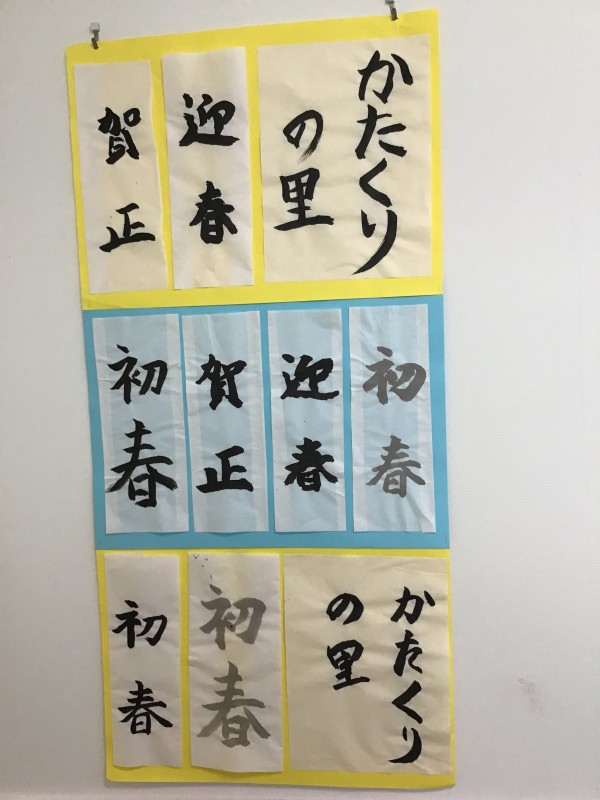 かたくり
の里
迎春
賀正
初春
迎春
賀正
初春
かたくり
の里
初春
初春